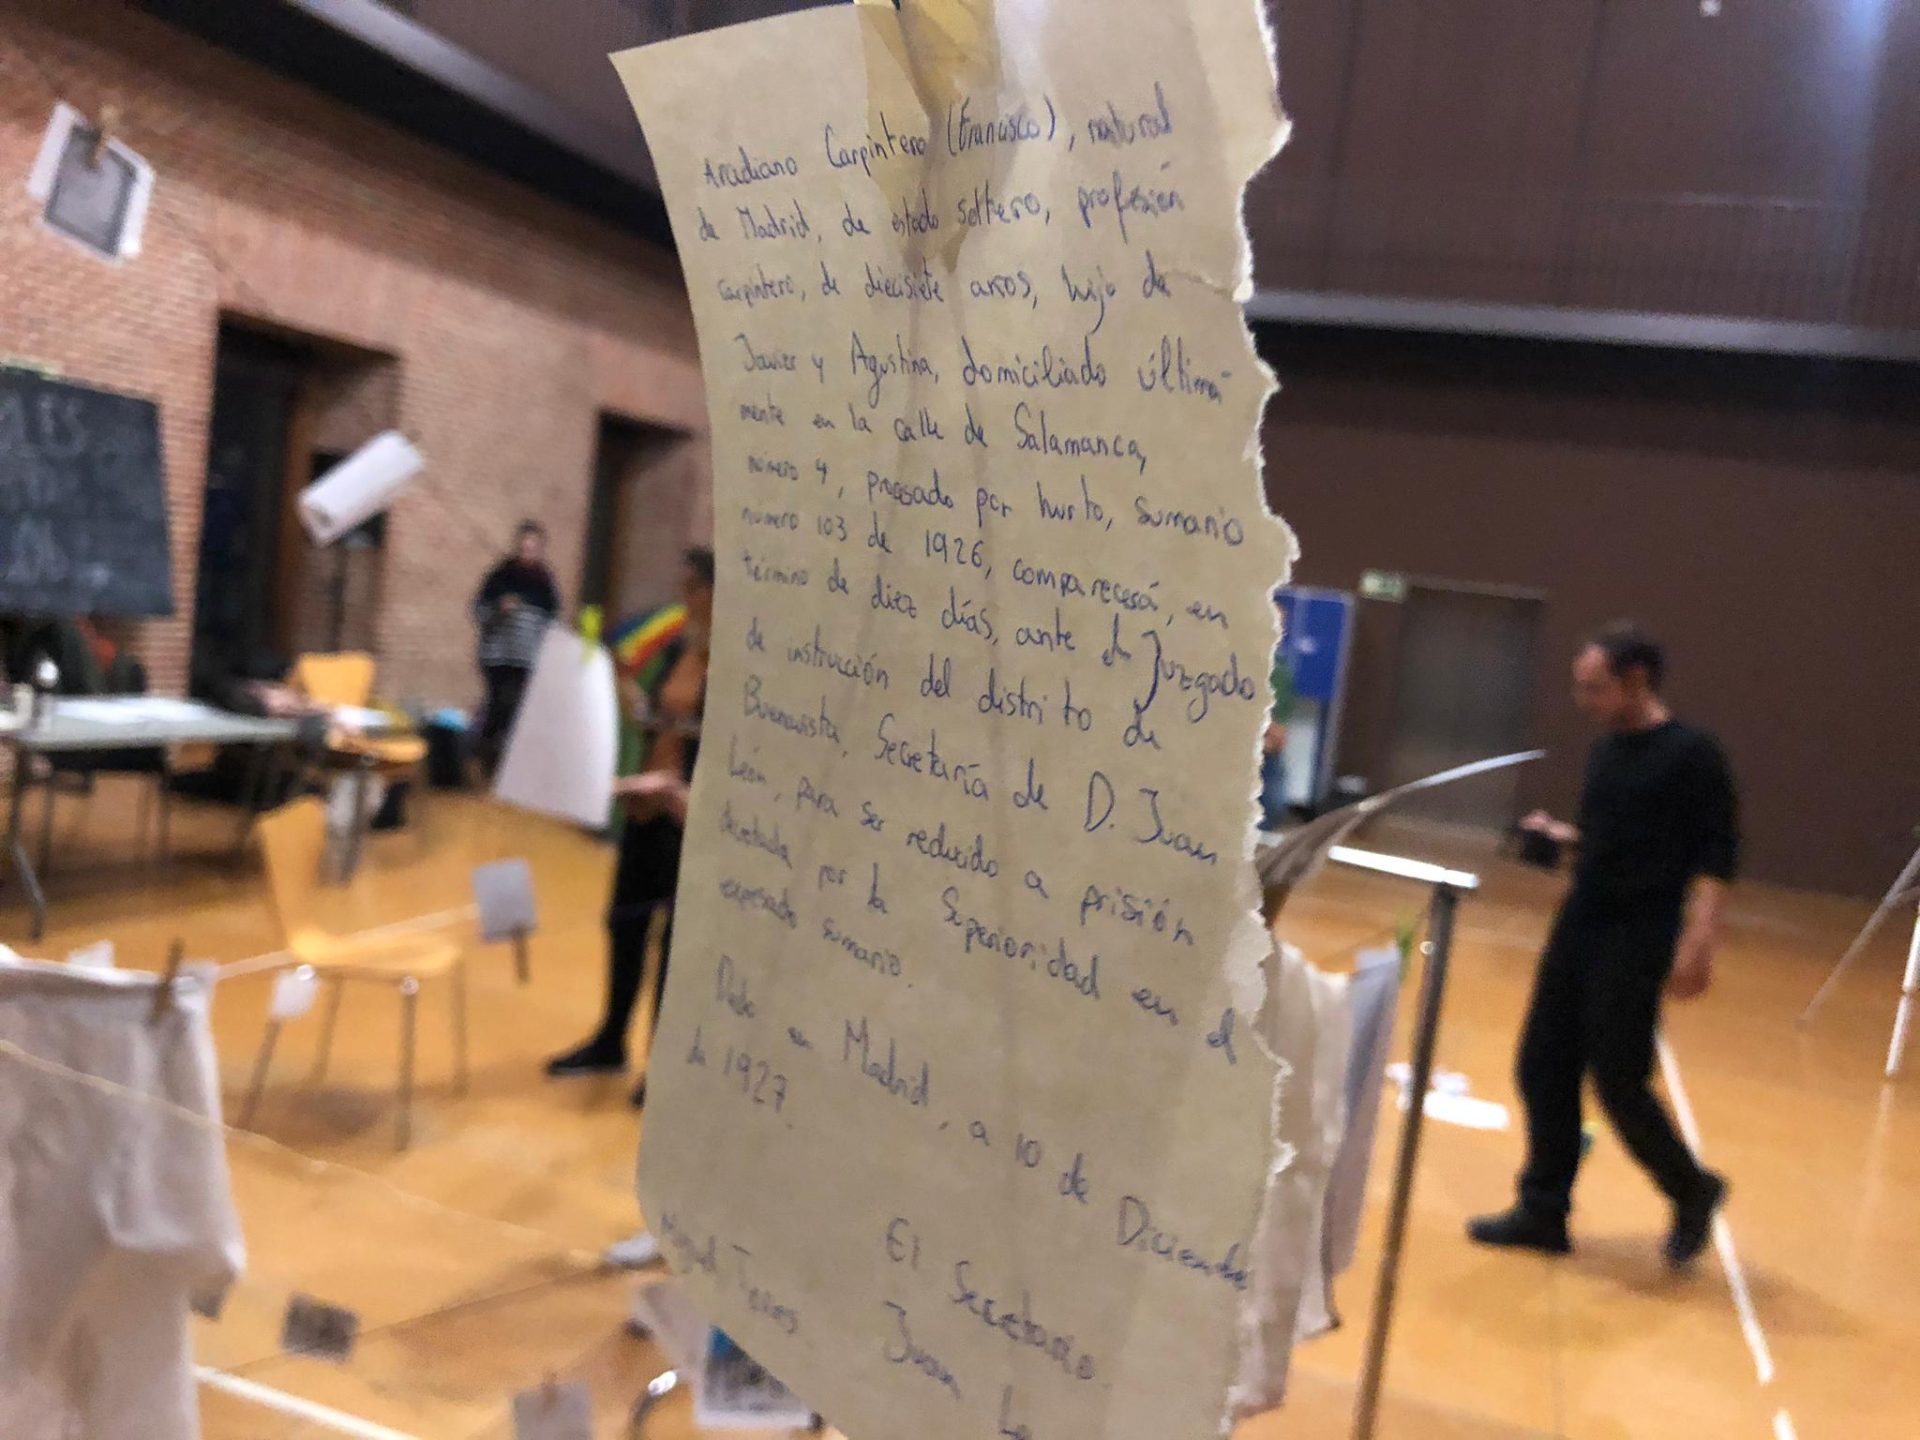 Arcediano Carpintero (Francisco), natural
de Madrid, de estado soltero, profesión
carpintero, de diecisiete años, hijo de
Javier y Agustina, domiciliado última
mente en la calle de Salamanca,
número 4, procesado por hurto, sumario
número 103 de 1926, comparecerá, en
término de diez días, ante el Juzgado
de instrucción del distrito de
Buenavista, Secretaría de D. Juan
León, para ser reducido a prisión
decretada por la Superioridad en el
expresado sumario.
Dado en Madrid, a 10 de Diciembre
de 1927.
El Secretario
Miguel Torres Juan